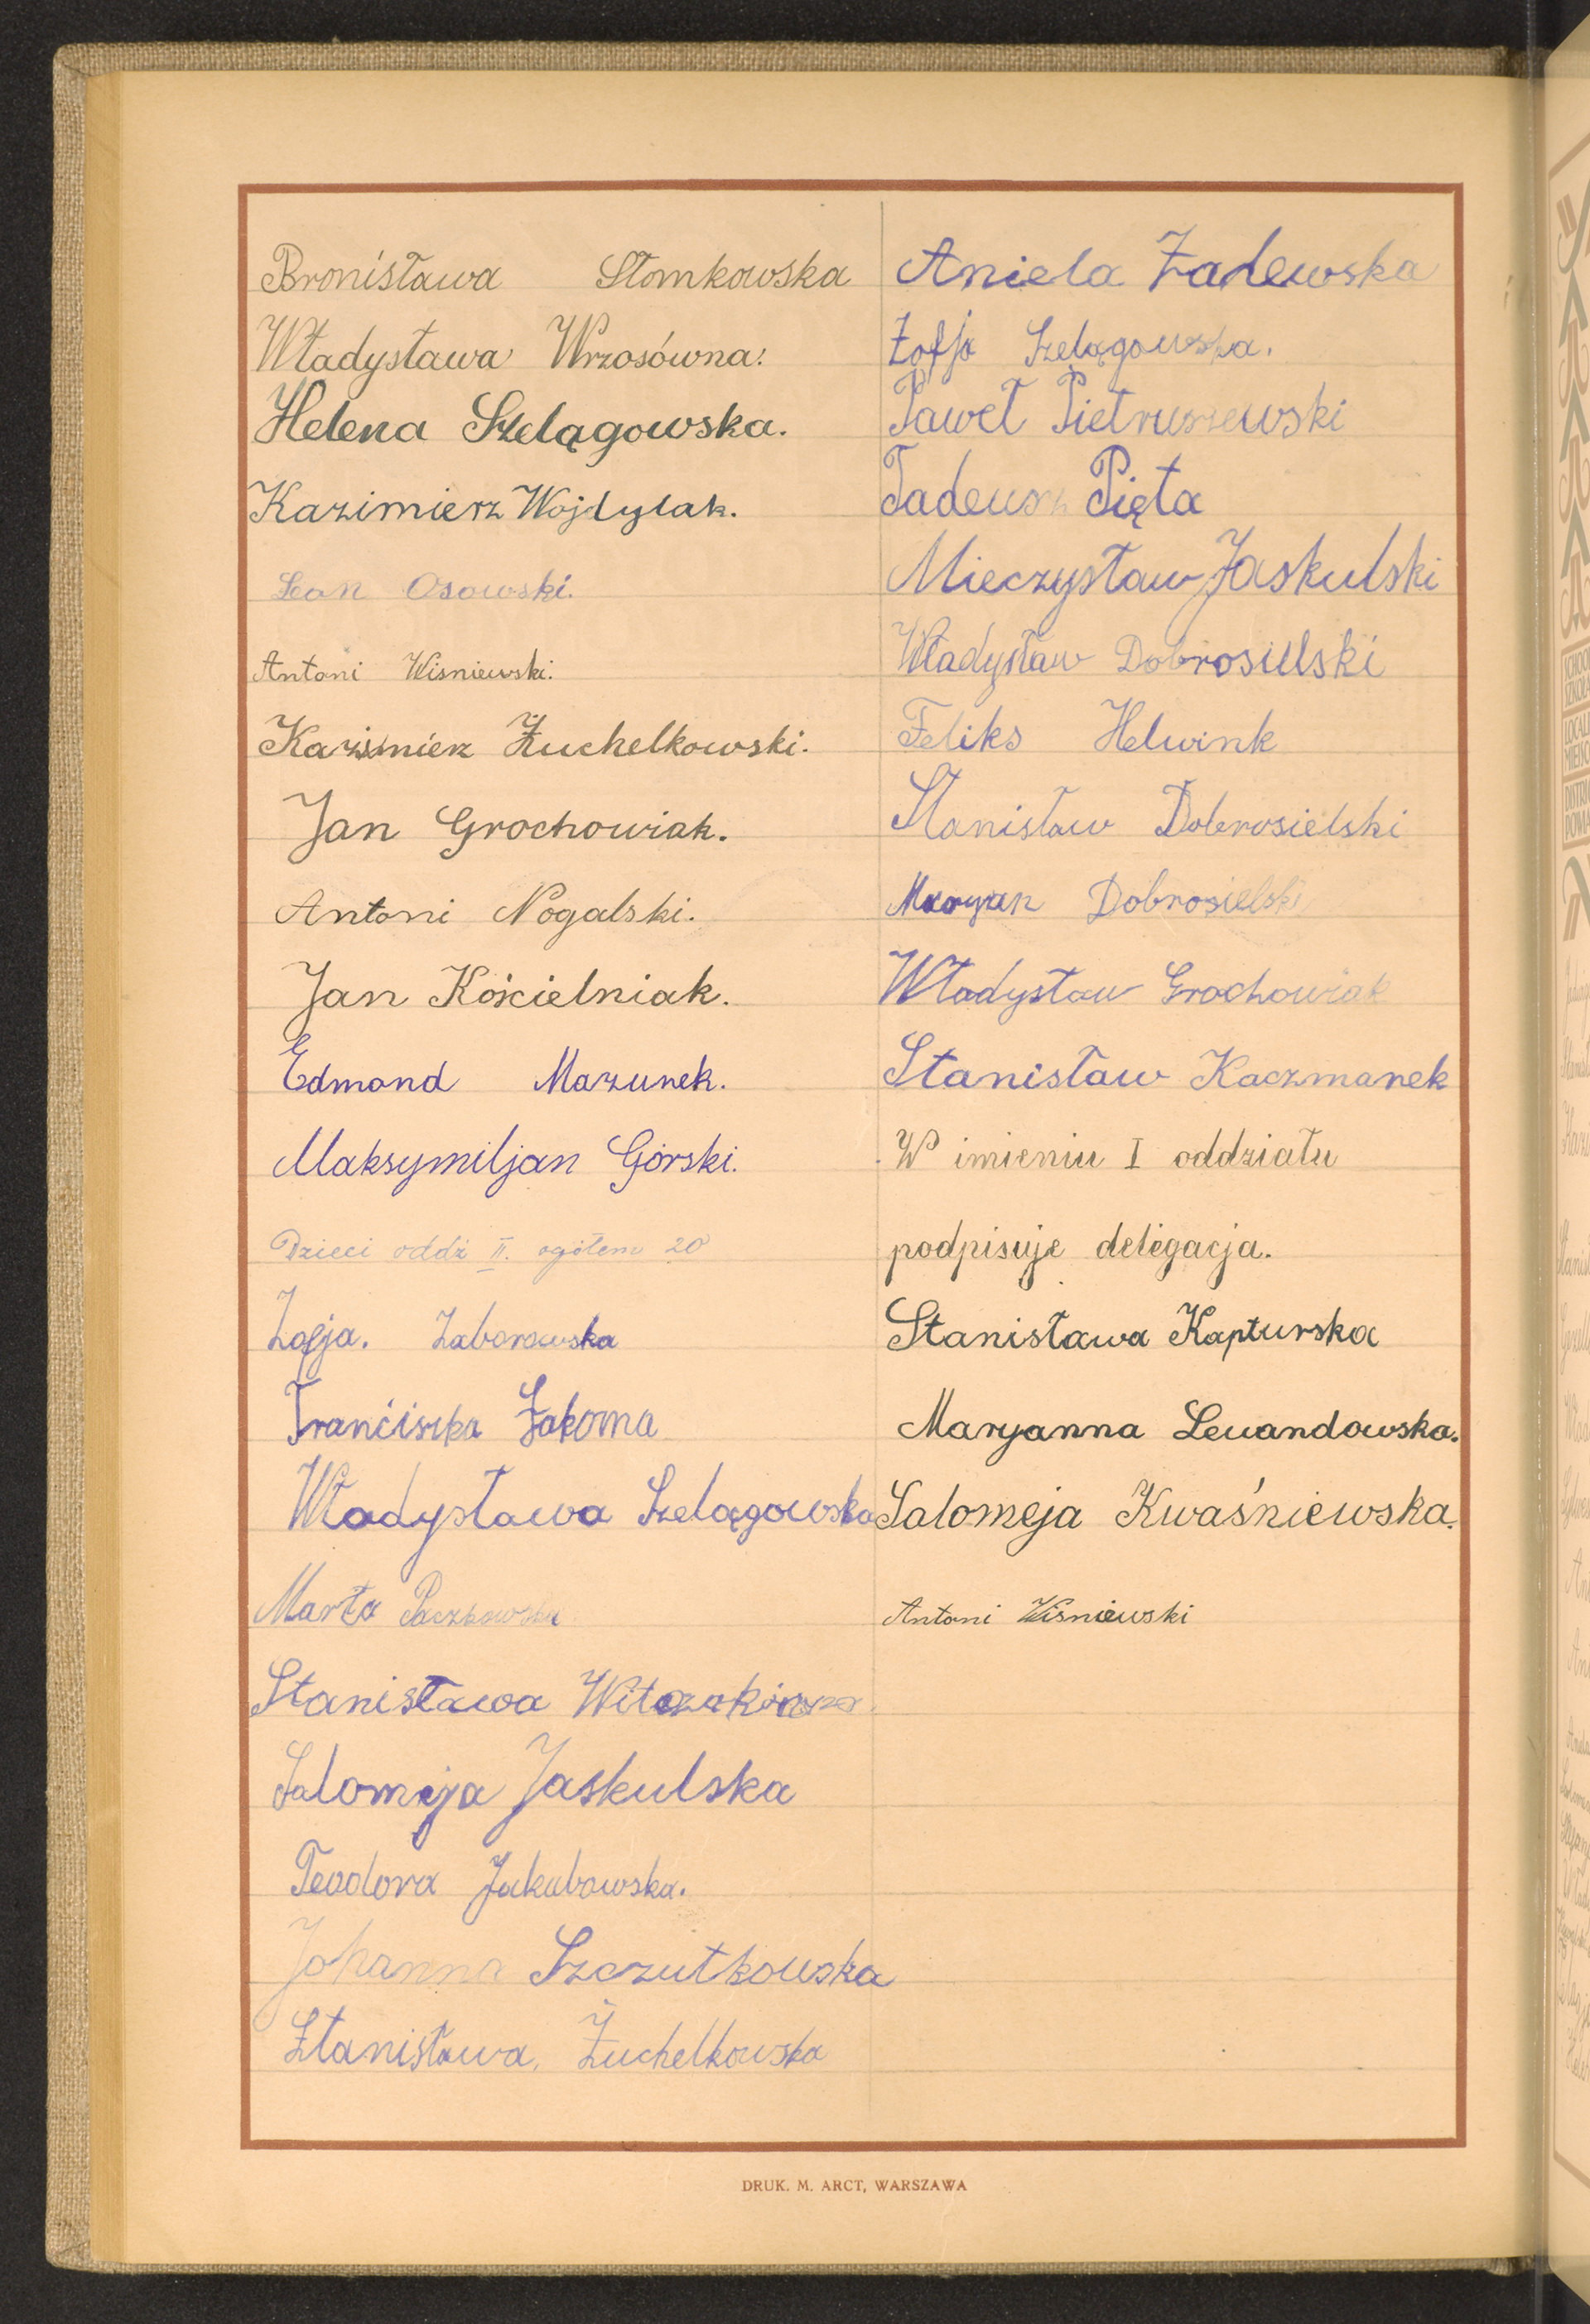 Bronisława Słomkowska
Władysława Wrzosówna.
Helena Szelągowska.
Kazimierz Wojdylak.
Leon Osowski.
Antoni Wisniewski.
Kazimierz Żuchelkowski.
Jan Grochowiak.
Antoni Nogalski.
Jan Kościelniak.
Edmond Mazurek.
Maksymiljan Górski.
Dzieci oddz II. ogółem 20
Zofja. Zaborowska
Franciszka Zakoma
Władysława Szelągowska
Marta Paczkowska
Stanisława Witczakówna.
Salomeja Jaskulska
Teodora Jakubowska.
Johanna Szczutkowska
Stanisława, Żuchelkowska
Aniela Zadewska
Zofja Szelągowska.
Paweł Pietruszewski
Tadeusz Pięta
Mieczysław Jaskulski
Władysław Dobrosielski
Feliks Helwink
Stanisław Dobrosielski
Maryan Dobrosielski
Władysław Grochowiak
Stanisław Kaczmarek
W imieniu I oddziału
podpisuje delegacja.
Stanisława Kapturska
Maryanna Lewandowska.
Salomeja Kwaśniewska.
Antoni Wisniewski
DRUK. M. ARCT, WARSZAWA